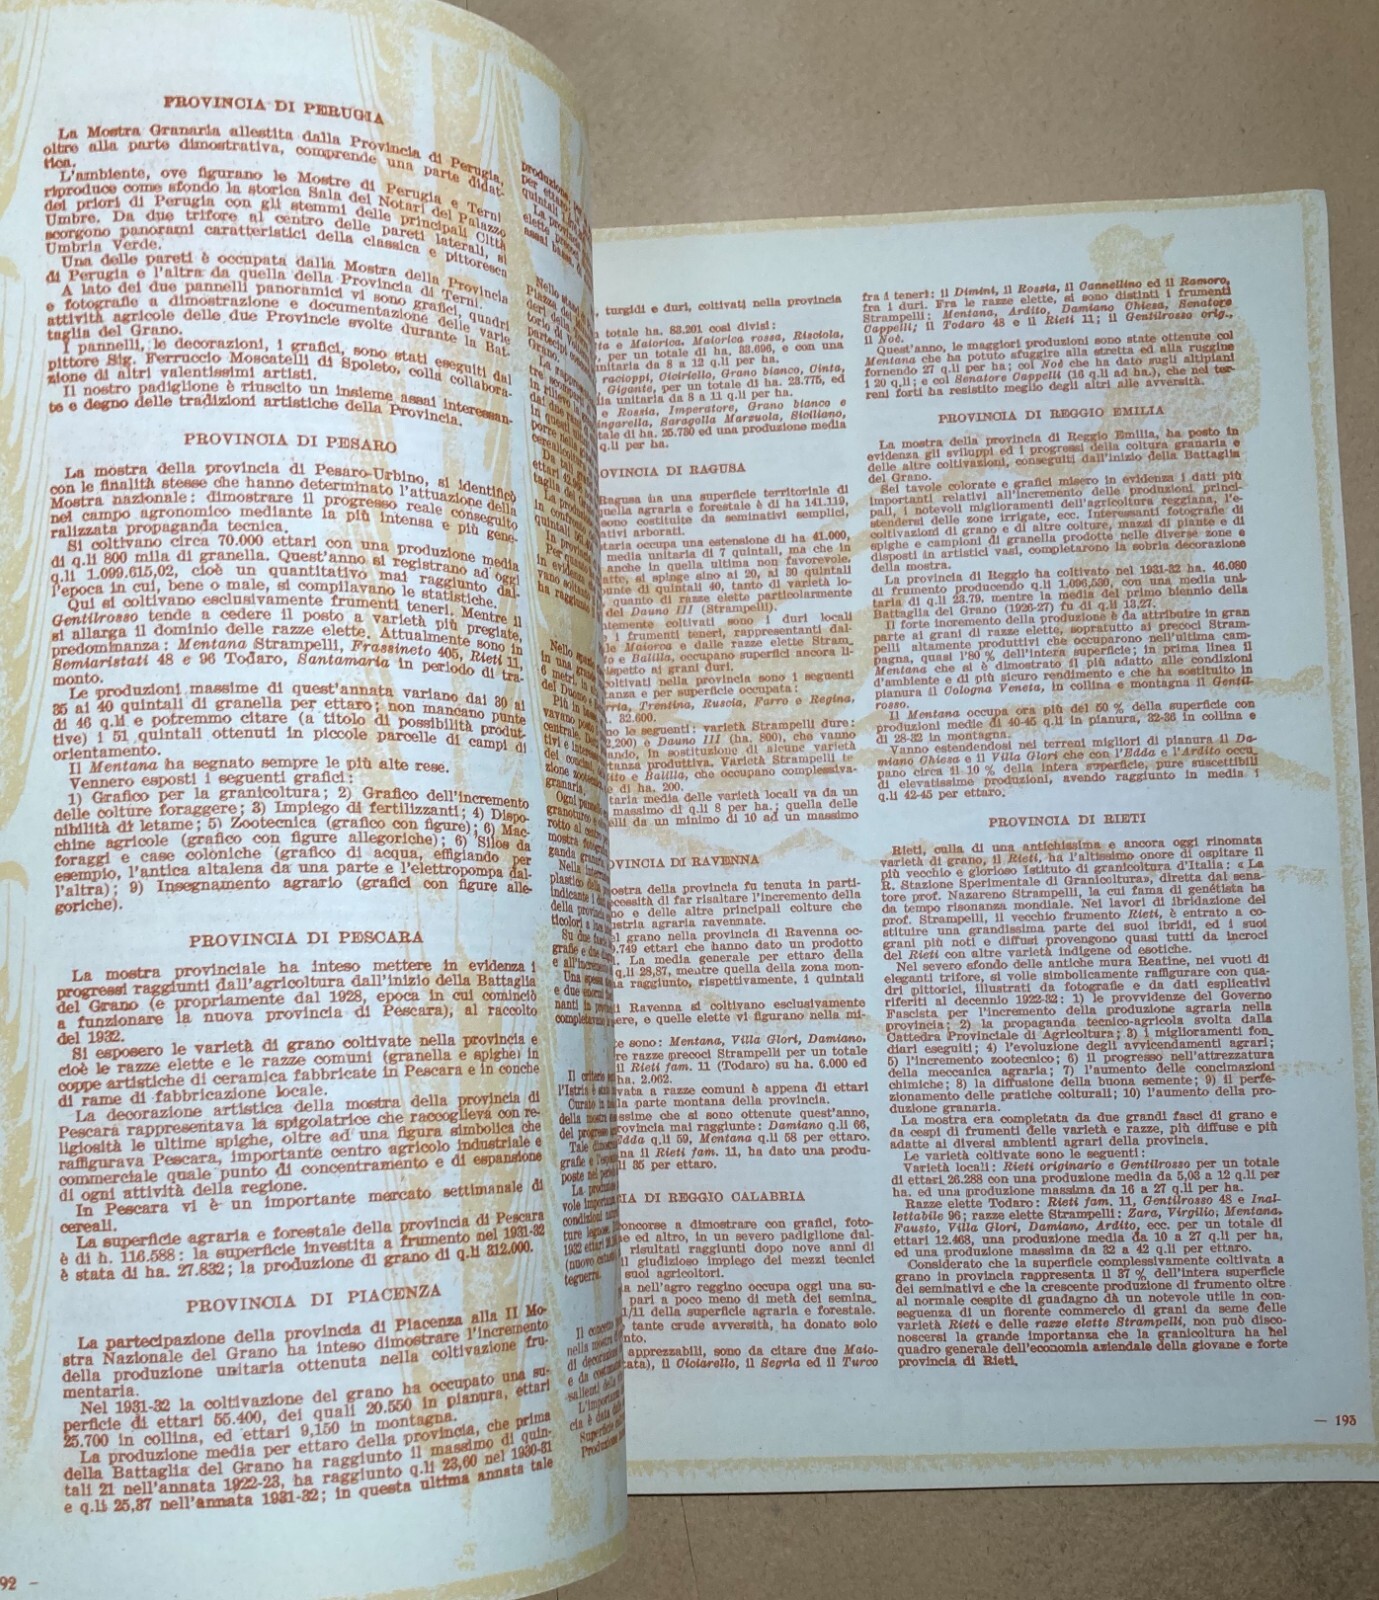 PROVINCIA DI PERUGIA
La Mostra Granaria allestita dalla Provincia di Perugia,
oltre alla parte dimostrativa, comprende una parte didat-
tica.
L'ambiente, ove figurano le Mostre di Perugia e Terni
riproduce come sfondo la storica Sala dei Notari del Palazzo
dei priori di Perugia con gli stemmi delle principali Città
Umbre. Da due trifore al centro delle pareti laterali, si
scorgono panorami caratteristici della classica e pittoresca
Umbria Verde.
Una delle pareti è occupata dalla Mostra della Provincia
di Perugia e l'altra da quella della Provincia di Terni.
A lato dei due pannelli panoramici vi sono grafici, quadri
e fotografie a dimostrazione e documentazione delle varie
attività agricole delle due Provincie svolte durante la Bat-
taglia del Grano.
I pannelli, le decorazioni, i grafici, sono stati eseguiti dal
pittore Sig. Ferruccio Moscatelli di Spoleto, colla collabora-
zione di altri valentissimi artisti.
Il nostro padiglione è riuscito un insieme assai interessan-
te e degno delle tradizioni artistiche della Provincia.
PROVINCIA DI PESARO
La mostra della provincia di Pesaro-Urbino, si identificò
con le finalità stesse che hanno determinato l'attuazione della
Mostra nazionale: dimostrare il progresso reale conseguito
nel campo agronomico mediante la più intensa e più gene-
ralizzata propaganda tecnica.
Si coltivano circa 70.000 ettari con una produzione media
di q.li 800 mila di granella. Quest'anno si registrano ad oggi
q.li 1.099.615,02, cioè un quantitativo mai raggiunto dal-
l'epoca in cui, bene o male, si compilavano le statistiche.
Qui si coltivano esclusivamente frumenti teneri. Mentre il
Gentilrosso tende a cedere il posto a varietà più pregiate,
si allarga il dominio delle razze elette. Attualmente sono in
predominanza: Mentana Strampelli, Frassineto 405, Rieti 11,
Semiaristati 48 e 96 Todaro, Santamaria in periodo di tra-
monto.
Le produzioni massime di quest'annata variano dai 30 ai
35 ai 40 quintali di granella per ettaro; non mancano punte
di 46 q.li e potremmo citare (a titolo di possibilità produt-
tive) i 51 quintali ottenuti in piccole parcelle di campi di
orientamento.
Il Mentana ha segnato sempre le più alte rese.
Vennero esposti i seguenti grafici:
1) Grafico per la granicoltura; 2) Grafico dell'incremento
delle colture foraggere; 3) Impiego di fertilizzanti; 4) Dispo-
nibilità di letame; 5) Zootecnica (grafico con figure); 6) Mac-
chine agricole (grafico con figure allegoriche); 6) Silos da
foraggi e case coloniche (grafico di acqua, effigiando per
esempio, l'antica altalena da una parte e l'elettropompa dal-
l'altra); 9) Insegnamento agrario (grafici con figure alle-
goriche).
PROVINCIA DI PESCARA
La mostra provinciale ha inteso mettere in evidenza i
progressi raggiunti dall'agricoltura dall'inizio della Battaglia
del Grano (e propriamente dal 1928, epoca in cui cominciò
a funzionare la nuova provincia di Pescara), al raccolto
del 1932.
Si esposero le varietà di grano coltivate nella provincia e
cioè le razze elette e le razze comuni (granella e spighe) in
coppe artistiche di ceramica fabbricate in Pescara e in conche
di rame di fabbricazione locale.
La decorazione artistica della mostra della provincia di
Pescara rappresentava la spigolatrice che raccoglieva con re-
ligiosità le ultime spighe, oltre ad una figura simbolica che
raffigurava Pescara, importante centro agricolo industriale e
commerciale quale punto di concentramento e di espansione
di ogni attività della regione.
In Pescara vi è un importante mercato settimanale di
cereali.
La superficie agraria e forestale della provincia di Pescara
è di h. 116.588: la superficie investita a frumento nel 1931-32
è stata di ha. 27.832; la produzione di grano di q.li 312.000.
PROVINCIA DI PIACENZA
La partecipazione della provincia di Piacenza alla II Mo-
stra Nazionale del Grano ha inteso dimostrare l'incremento
della produzione unitaria ottenuta nella coltivazione fru-
mentaria.
Nel 1931-32 la coltivazione del grano ha occupato una su-
perficie di ettari 55.400, dei quali 20.550 in pianura, ettari
25.700 in collina, ed ettari 9,150 in montagna.
La produzione media per ettaro della provincia, che prima
della Battaglia del Grano ha raggiunto il massimo di quin-
tali 21 nell'annata 1922-23, ha raggiunto q.li 23,60 nel 1930-31
e q.li 25,37 nell'annata 1931-32; in questa ultima annata tale
92 –
, turgidi e duri, coltivati nella provincia
totale ha. 83.201 così divisi:
a e Maiorica, Maiorica rossa, Risciola,
, per un totale di ha. 33.696, e con una
nitaria da 8 a 12 q.li per ha.
racioppi, Ciciriello, Grano bianco, Cinta,
Gigante, per un totale di ha. 23.775, ed
ia unitaria da 8 a 11 q.li per ha.
e Rossia, Imperatore, Grano bianco e
ngarella, Saragolla Marzuola, Siciliano,
tale di ha. 25.730 ed una produzione media
q.li per ha.
OVINCIA DI RAGUSA
Ragusa ha una superficie territoriale di
uella agraria e forestale è di ha 141.119,
sono costituite da seminativi semplici,
ativi arborati.
taria occupa una estensione di ha 41.000,
media unitaria di 7 quintali, ma che in
anche in quella ultima non favorevole,
atte, si spinge sino ai 20, ai 30 quintali
unte di quintali 40, tanto di varietà lo-
quanto di razze elette particolarmente
del Dauno III (Strampelli).
temente coltivati sono i duri locali
i frumenti teneri, rappresentanti dal-
le Maiorca e dalle razze elette Stram.
o e Balilla, occupano superfici ancora li-
ispetto ai grani duri.
coltivati nella provincia sono i seguenti
anza e per superficie occupata:
rria, Trentina, Ruscia, Farro e Regina,
. 32.600.
no le seguenti: varietà Strampelli dure:
2.200) e Dauno III (ha. 800), che vanno
ando, in sostituzione di alcune varietà
tanza produttiva. Varietà Strampelli te
ito e Balilla, che occupano complessiva-
e di ha. 200.
taria media delle varietà locali va da un
massimo di q.li 8 per ha.; quella delle
elli da un minimo di 10 ad un massimo
OVINCIA DI RAVENNA
ostra della provincia fu tenuta in parti-
cessità di far risaltare l'incremento della
no e delle altre principali colture che
ustria agraria ravennate.
el grano nella provincia di Ravenna oc-
.749 ettari che hanno dato un prodotto
. La media generale per ettaro della
q.li 28,87, mentre quella della zona mon-
a raggiunto, rispettivamente, i quintali
i Ravenna si coltivano esclusivamente
nere, e quelle elette vi figurano nella mi-
te sono: Mentana, Villa Glori, Damiano,
re razze precoci Strampelli per un totale
il Rieti fam. 11 (Todaro) su ha. 6.000 ed
ha. 2.062.
vata a razze comuni è appena di ettari
la parte montana della provincia.
assime che si sono ottenute quest'anno,
rovincia mai raggiunte: Damiano q.li 66,
Edda q.li 59, Mentana q.li 58 per ettaro.
na il Rieti fam. 11, ha dato una produ-
li 35 per ettaro.
CIA DI REGGIO CALABRIA
concorse a dimostrare con grafici, foto-
se ed altro, in un severo padiglione dal-
risultati raggiunti dopo nove anni di
il giudizioso impiego dei mezzi tecnici
suoi agricoltori.
a nell'agro reggino occupa oggi una su-
pari a poco meno di metà dei semina_
1/11 della superficie agraria e forestale.
tante crude avversità, ha donato solo
nto.
apprezzabili, sono da citare due Maio-
tata), il Ciciarello, il Segria ed il Turco
fra i teneri: il Dimini, il Rossia, il Cannellino ed il Ramoro,
fra i duri. Fra le razze elette, si sono distinti i frumenti
Strampelli: Mentana, Ardito, Damiano Chiesa, Senatore
Cappelli; il Todaro 48 e il Rieti 11; il Gentilrosso orig.,
il Noè.
Quest'anno, le maggiori produzioni sono state ottenute col
Mentana che ha potuto sfuggire alla stretta ed alla ruggine
fornendo 27 q.li per ha; col Noè che ha dato sugli altipiani
i 20 q.li; e col Senatore Cappelli (16 q.li ad ha.), che nei ter-
reni forti ha resistito meglio degli altri alle avversità.
PROVINCIA DI REGGIO EMILIA
La mostra della provincia di Reggio Emilia, ha posto in
evidenza gli sviluppi ed i progressi della coltura granaria e
delle altre coltivazioni, conseguiti dall'inizio della Battaglia
del Grano.
Sei tavole colorate e grafici misero in evidenza i dati più
importanti relativi all'incremento delle produzioni princi-
pali, i notevoli miglioramenti dell'agricoltura reggiana, l'e-
stendersi delle zone irrigate, ecc. Interessanti fotografie di
coltivazioni di grano e di altre colture, mazzi di piante e di
spighe e campioni di granella prodotte nelle diverse zone e
disposti in artistici vasi, completarono la sobria decorazione
della mostra.
La provincia di Reggio ha coltivato nel 1931-32 ha. 46.080
di frumento producendo q.li 1.096,530, con una media uni-
taria di q.li 23.79, mentre la media del primo biennio della
Battaglia del Grano (1926-27) fu di q.li 13,27.
Il forte incremento della produzione è da attribuire in gran
parte ai grani di razze elette, sopratutto ai precoci Stram-
pelli altamente produttivi che occuparono nell'ultima cam-
pagna, quasi l'80 % dell'intera superficie; in prima linea il
Mentana che si è dimostrato il più adatto alle condizioni
d'ambiente e di più sicuro rendimento e che ha sostituito in
pianura il Cologna Veneta, in collina e montagna il Gentil.
rosso.
Il Mentana occupa ora più del 50 % della superficie con
produzioni medie di 40-45 q.li in pianura, 32-36 in collina e
di 28-32 in montagna.
Vanno estendendosi nei terreni migliori di pianura il Da-
miano Chiesa e il Villa Glori che con l'Edda e l'Ardito occu.
pano circa il 10 % della intera superficie, pure suscettibili
di elevatissime produzioni, avendo raggiunto in media i
q.li 42-45 per ettaro.
PROVINCIA DI RIETI
Rieti, culla di una antichissima e ancora oggi rinomata
varietà di grano, il Rieti, ha l'altissimo onore di ospitare il
più vecchio e glorioso Istituto di granicoltura d'Italia: « La
R. Stazione Sperimentale di Granicoltura», diretta dal sena-
tore prof. Nazareno Strampelli, la cui fama di genétista ha
da tempo risonanza mondiale. Nei lavori di ibridazione del
prof. Strampelli, il vecchio frumento Rieti, è entrato a co-
stituire una grandissima parte dei suoi ibridi, ed i suoi
grani più noti e diffusi provengono quasi tutti da incroci
del Rieti con altre varietà indigene od esotiche.
Nel severo sfondo delle antiche mura Reatine, nei vuoti di
eleganti trifore, si volle simbolicamente raffigurare con qua-
dri pittorici, illustrati da fotografie e da dati esplicativi
riferiti al decennio 1922-32: 1) le provvidenze del Governo
Fascista per l'incremento della produzione agraria nella
provincia; 2) la propaganda tecnico-agricola svolta dalla
Cattedra Provinciale di Agricoltura; 3) i miglioramenti fon_
diari eseguiti; 4) l'evoluzione degli avvicendamenti agrari;
5) l'incremento zootecnico; 6) il progresso nell'attrezzatura
della meccanica agraria; 7) l'aumento delle concimazioni
chimiche; 8) la diffusione della buona semente; 9) il perfe-
zionamento delle pratiche colturali; 10) l'aumento della pro-
duzione granaria.
La mostra era completata da due grandi fasci di grano e
da cespi di frumenti delle varietà e razze, più diffuse e più
adatte ai diversi ambienti agrari della provincia.
Le varietà coltivate sono le seguenti:
Varietà locali: Rieti originario e Gentilrosso per un totale
di ettari 26.288 con una produzione media da 5,03 a 12 q.li per
ha. ed una produzione massima da 16 a 27 q.li per ha.
Razze elette Todaro: Rieti fam. 11, Gentilrosso 48 e Inal_
lettabile 96; razze elette Strampelli: Zara, Virgilio; Mentana,
Fausto, Villa Glori, Damiano, Ardito, ecc. per un totale di
ettari 12.468, una produzione media da 10 a 27 q.li per ha,
ed una produzione massima da 32 a 42 q.li per ettaro.
Considerato che la superficie complessivamente coltivata a
grano in provincia rappresenta il 37 % dell'intera superficie
dei seminativi e che la crescente produzione di frumento oltre
al normale cespite di guadagno dà un notevole utile in con-
seguenza di un florente commercio di grani da seme delle
varietà Rieti e delle razze elette Strampelli, non può disco-
noscersi la grande importanza che la granicoltura ha nel
quadro generale dell'economia aziendale della giovane e forte
provincia di Rieti.
– 193